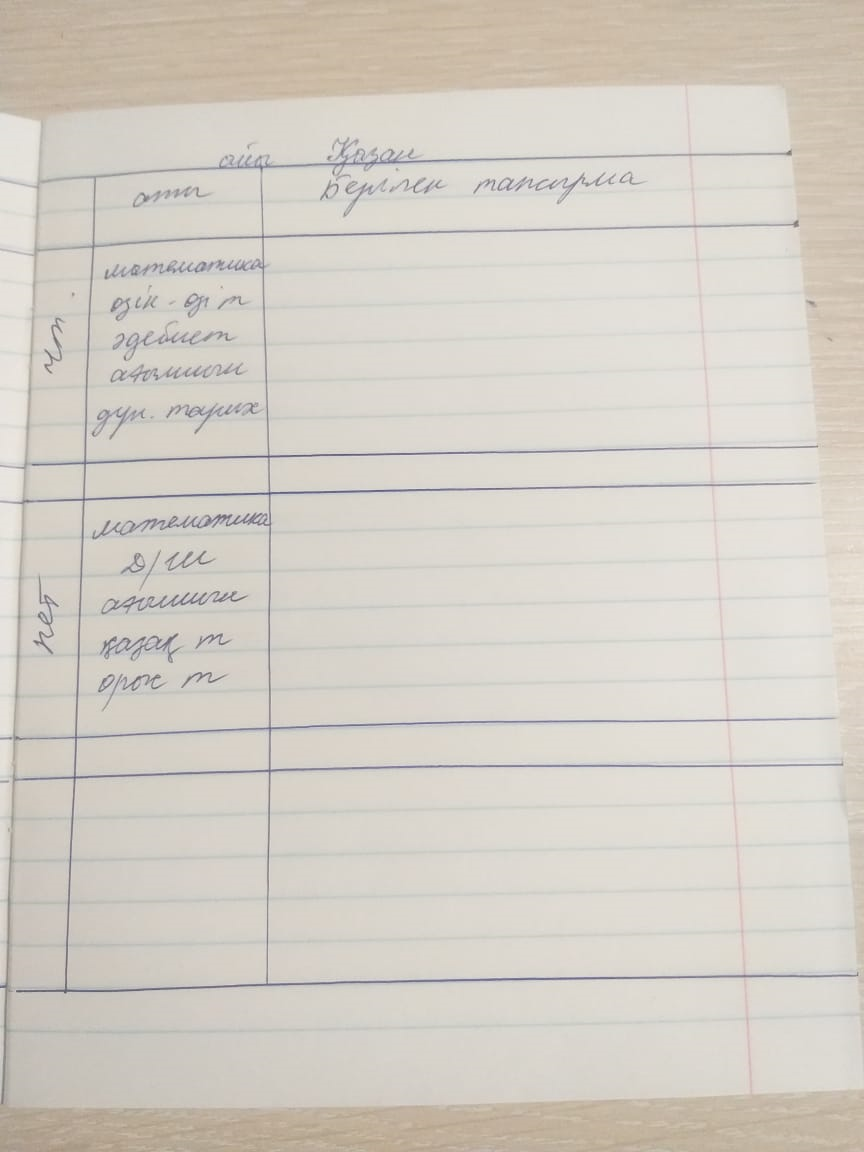 айы Қазан
аты Берілген тапсырма
чт.
математика
өзін-өзі т
әдебиет
ағылшын
дүн. тарих
пет
математика
Д/Ш
ағылшын
қазақ т
орыс т